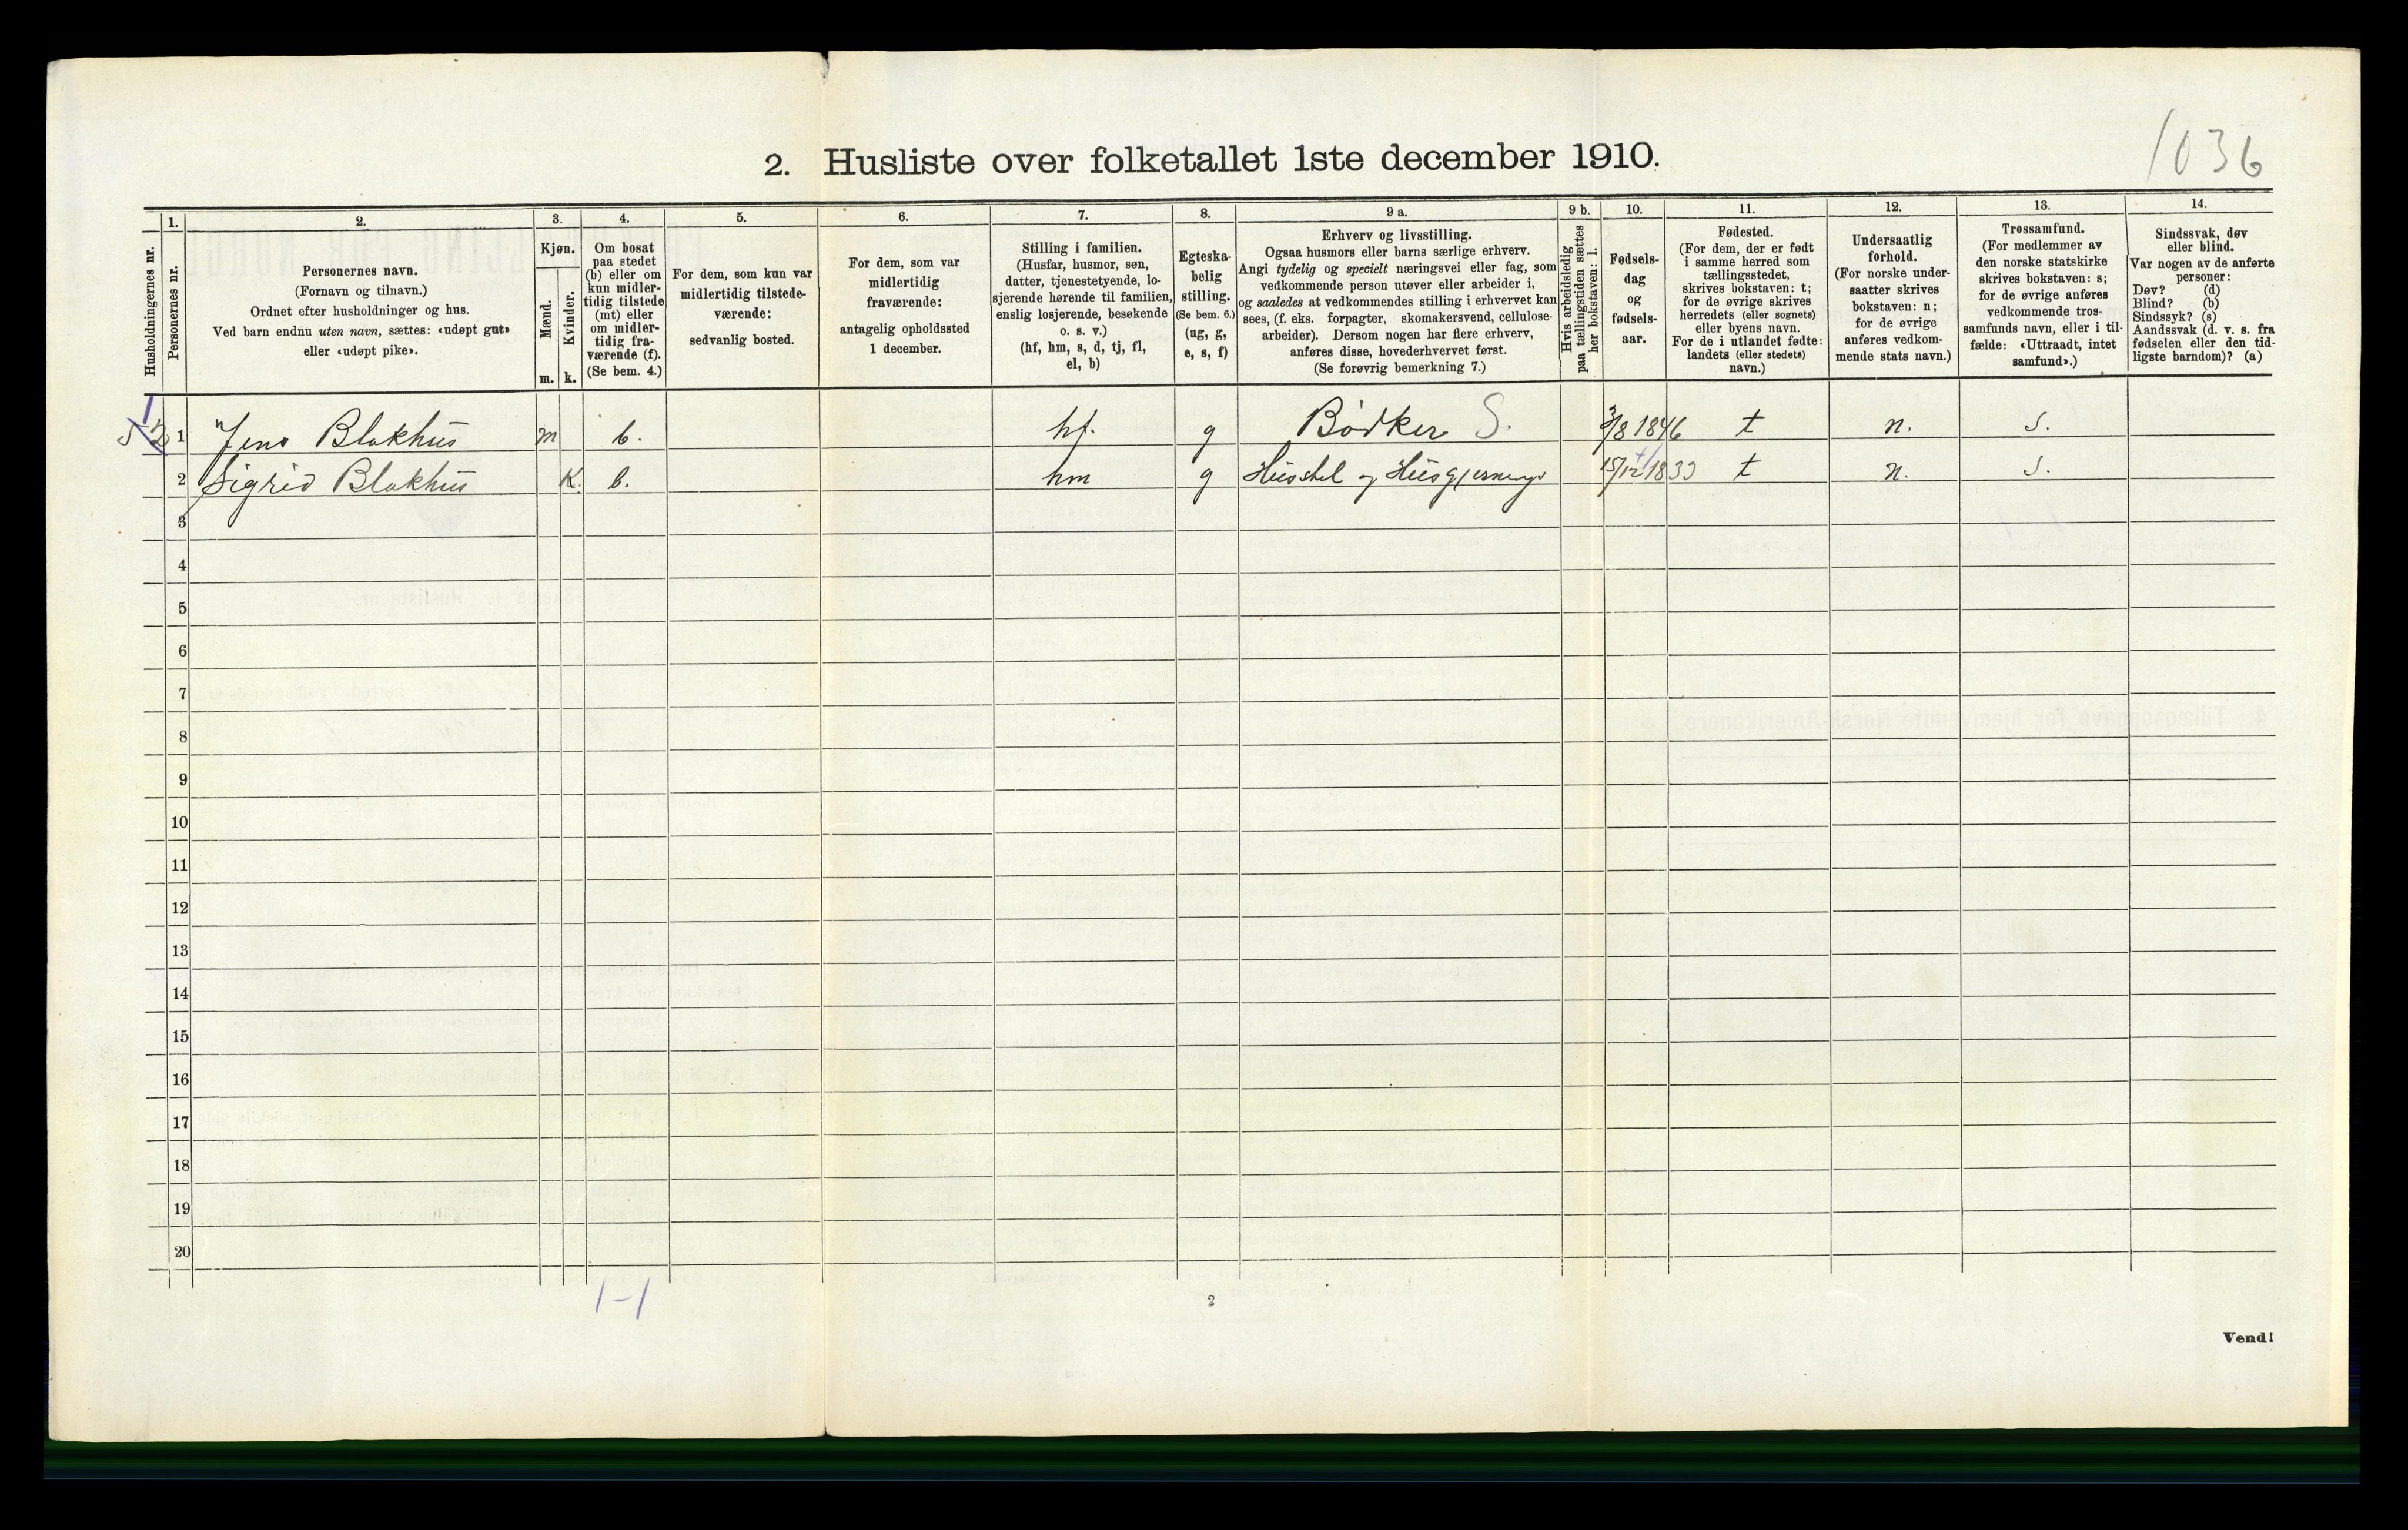 1036
2. Husliste over folketallet 1ste december 1910.
1. 2. 3. 4. 5. 6. 7. 8. 9 a. 9 b. 10. 11. 12. 13. 14.
Husholdningernes nr.
Personernes nr.
Personernes navn.
(Fornavn og tilnavn.)
Ordnet efter husholdninger og hus.
Ved barn endnu uten navn, sættes: «udøpt gut»
eller «udøpt pike».
Kjøn.
Mænd.
Kvinder.
m. k.
Om bosat
paa stedet
(b) eller om
kun midler-
tidig tilstede
(mt) eller
om midler-
tidig fra-
værende (f).
(Se bem. 4.)
For dem, som kun var
midlertidig tilstede-
værende:
sedvanlig bosted.
For dem, som var
midlertidig
fraværende:
antagelig opholdssted
1 december.
Stilling i familien.
(Husfar, husmor, søn,
datter, tjenestetyende, lo-
sjerende hørende til familien,
enslig losjerende, besøkende
o. s. v.)
(hf, hm, s, d, tj, fl,
el, b)
Egteska-
belig
stilling.
(Se bem. 6.)
(ug, g,
e, s, f)
Erhverv og livsstilling.
Ogsaa husmors eller barns særlige erhverv.
Angi tydelig og specielt næringsvei eller fag, som
vedkommende person utøver eller arbeider i,
og saaledes at vedkommendes stilling i erhvervet kan
sees, (f. eks. forpagter, skomakersvend, cellulose-
arbeider). Dersom nogen har flere erhverv,
anføres disse, hovederhvervet først.
(Se forøvrig bemerkning 7.)
Hvis arbeidsledig
paa tællingstiden sættes
her bokstaven: l.
Fødsels-
dag
og
fødsels-
aar.
Fødested.
(For dem, der er født
i samme herred som
tællingsstedet,
skrives bokstaven: t;
for de øvrige skrives
herredets (eller sognets)
eller byens navn.
For de i utlandet fødte:
landets (eller stedets)
navn.)
Undersaatlig
forhold.
(For norske under-
saatter skrives
bokstaven: n;
for de øvrige
anføres vedkom-
mende stats navn.)
Trossamfund.
(For medlemmer av
den norske statskirke
skrives bokstaven: s;
for de øvrige anføres
vedkommende tros-
samfunds navn, eller i til-
fælde: «Uttraadt, intet
samfund».)
Sindssvak, døv
eller blind.
Var nogen av de anførte
personer:
Døv? (d)
Blind? (b)
Sindssyk? (s)
Aandssvak (d. v. s. fra
fødselen eller den tid-
ligste barndom)? (a)
1
1 Jens Blokhus m b. hf. g Bødker S. 3/8 1846 t n. s.
2 Sigrid Blokhus K. b. hm g Husstel og Husgjerning 15/12 1833 t n. s.
3
4
5
6
7
8
9
10
11
12
13
14
15
16
17
18
19
20
1-1
2
Vend!